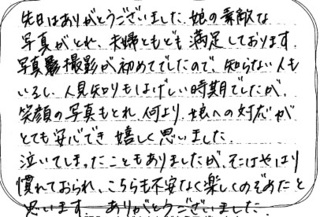 先日はありがとうございました。娘の素敵な
写真がとれ、夫婦ともども満足しております。
写真撮影が初めてでしたので、知らない人も
いるし、人見知りもはげしい時期でしたが、
笑顔の写真もとれ、何より、娘への対応が
とても安心でき嬉しく思いました。
泣いてしまったこともありましたが、そこはやはり
慣れておられ、こちらも不安なく楽しくのぞめたと
思います。ありがとうございました。